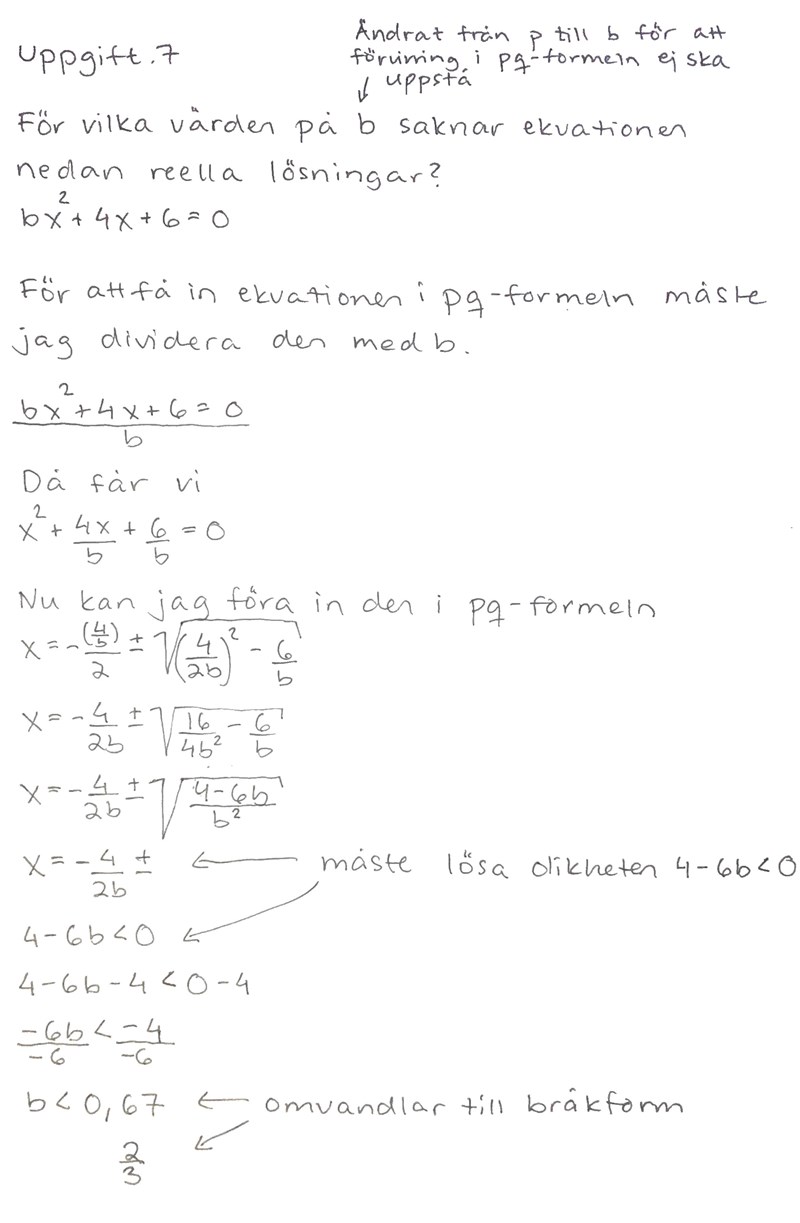 Uppgift.7
Ändrat från p till b för att
förvirring i pq-formeln ej ska
↓ uppstå
För vilka värden på b saknar ekvationen
nedan reella lösningar?
bx² + 4x + 6 = 0
För att få in ekvationen i pq-formeln måste
jag dividera den med b.
(bx² + 4x + 6 = 0)/b
Då får vi
x² + 4x/b + 6/b = 0
Nu kan jag föra in den i pq-formeln
x = -(4/b)/2 ± √((4/2b)² - 6/b)
x = -4/2b ± √(16/4b² - 6/b)
x = -4/2b ± √((4-6b)/b²)
x = -4/2b ± ← måste lösa olikheten 4-6b<0
4-6b<0 ↙
4-6b-4<0-4
-6b/-6 < -4/-6
b<0,67 ← omvandlar till bråkform
2/3 ↙